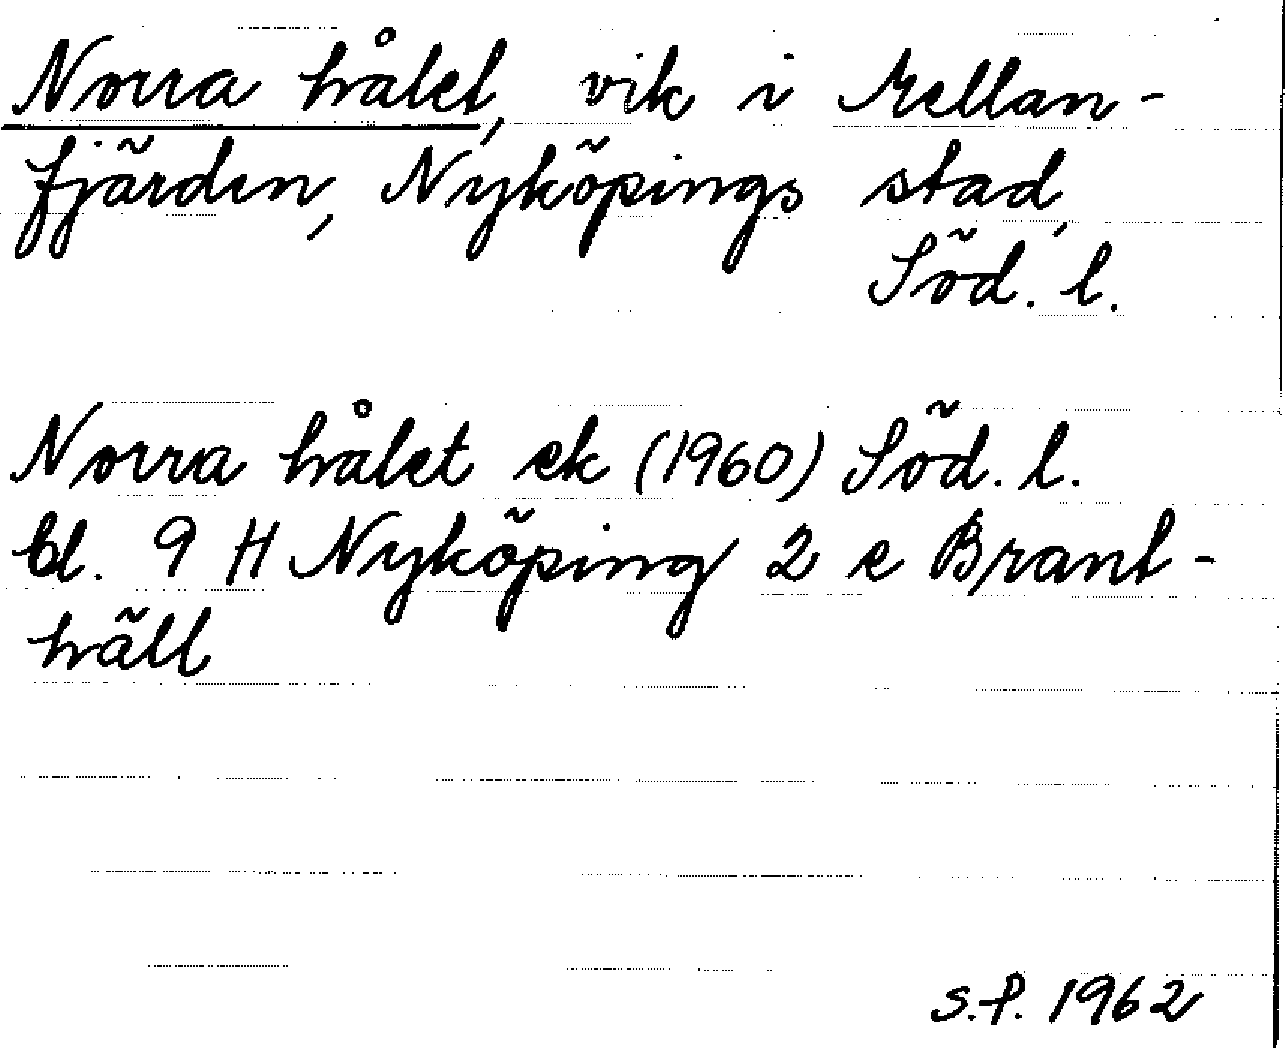 Norra hålet, vik i Mellan-
fjärden, Nyköpings stad,
Söd. l.
Norra hålet ek (1960) Söd. l.
bl. 9 H Nyköping 2 e Brant-
häll
S.P. 1962